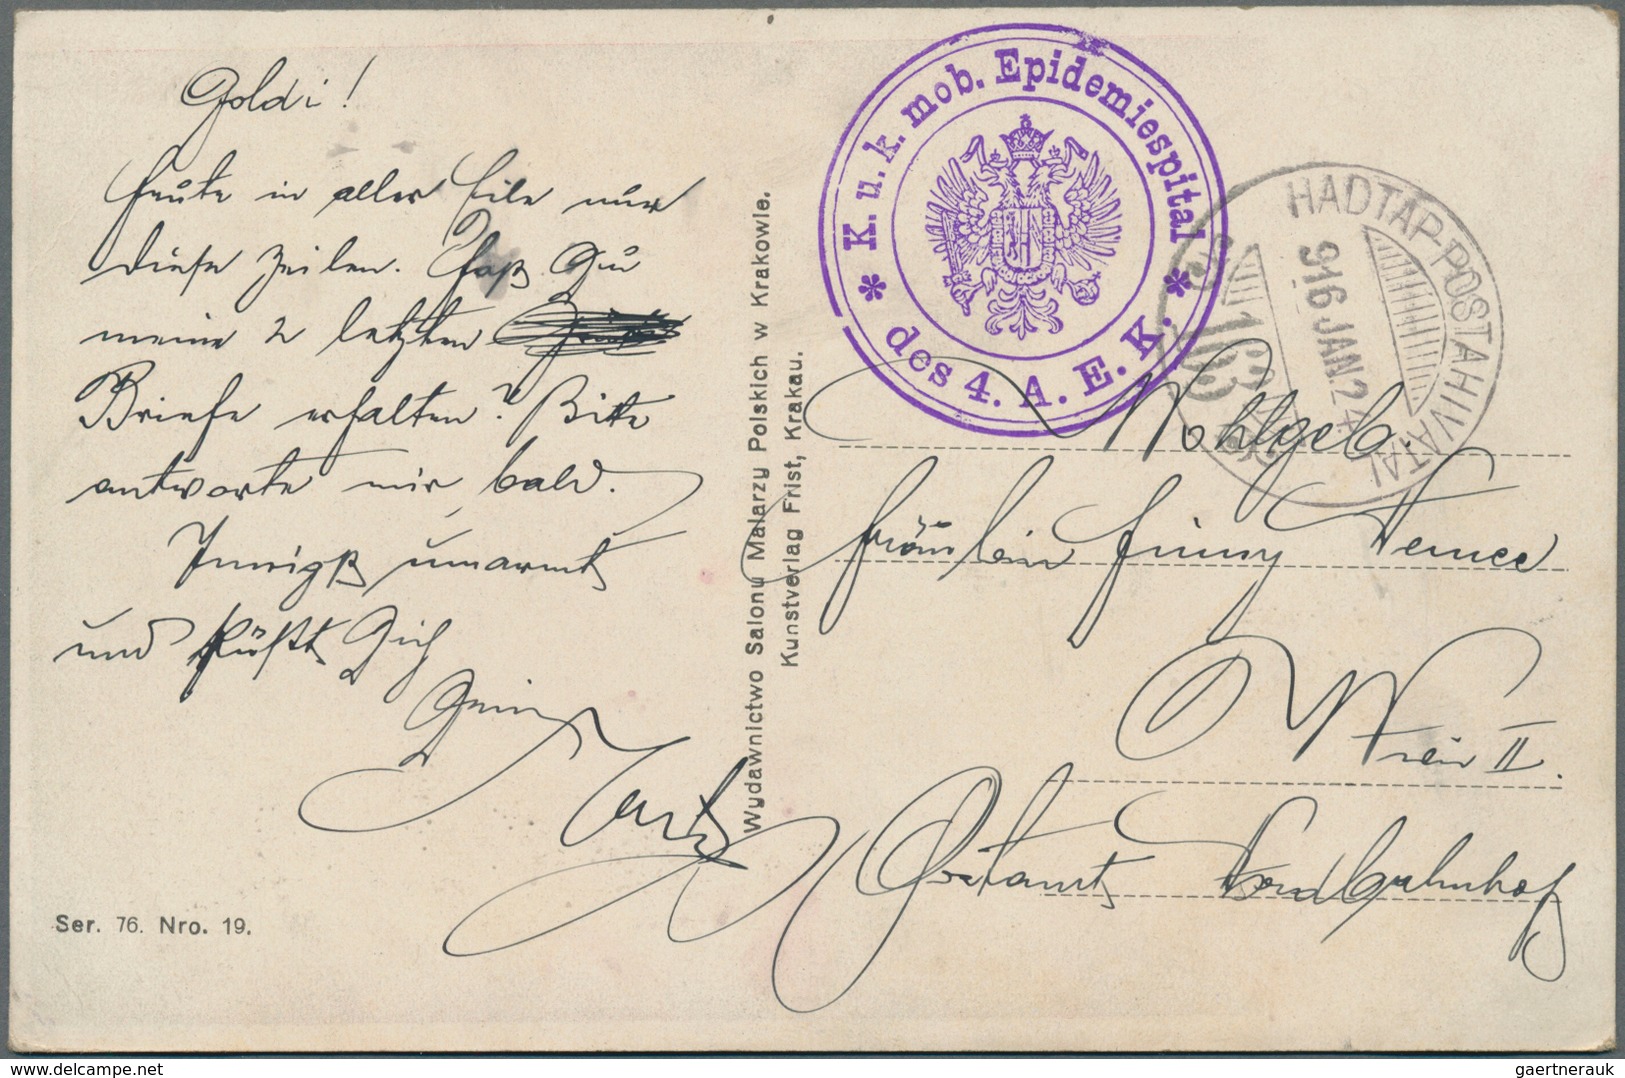 Goldi!
Heute in aller Eile nur
diese Zeilen. Hast Du
meine 2 letzten
Briefe erhalten? Bitte
antworte mir bald.
Innigst umarmt
und küßt Dich
Dein
Ser. 76. Nro. 19.
Wydawnictwo Salonu Malarzy Polskich w Krakowie.
Kunstverlag Frist, Krakau.
* K. u. k. mob. Epidemiespital *
des 4. A. E. K.
HADTÁP-POSTAHIVATAL
916 JAN. 24
Wohlgeb.
Fräulein
Wien II.
Postamt Nordbahnhof
gaertnerauk